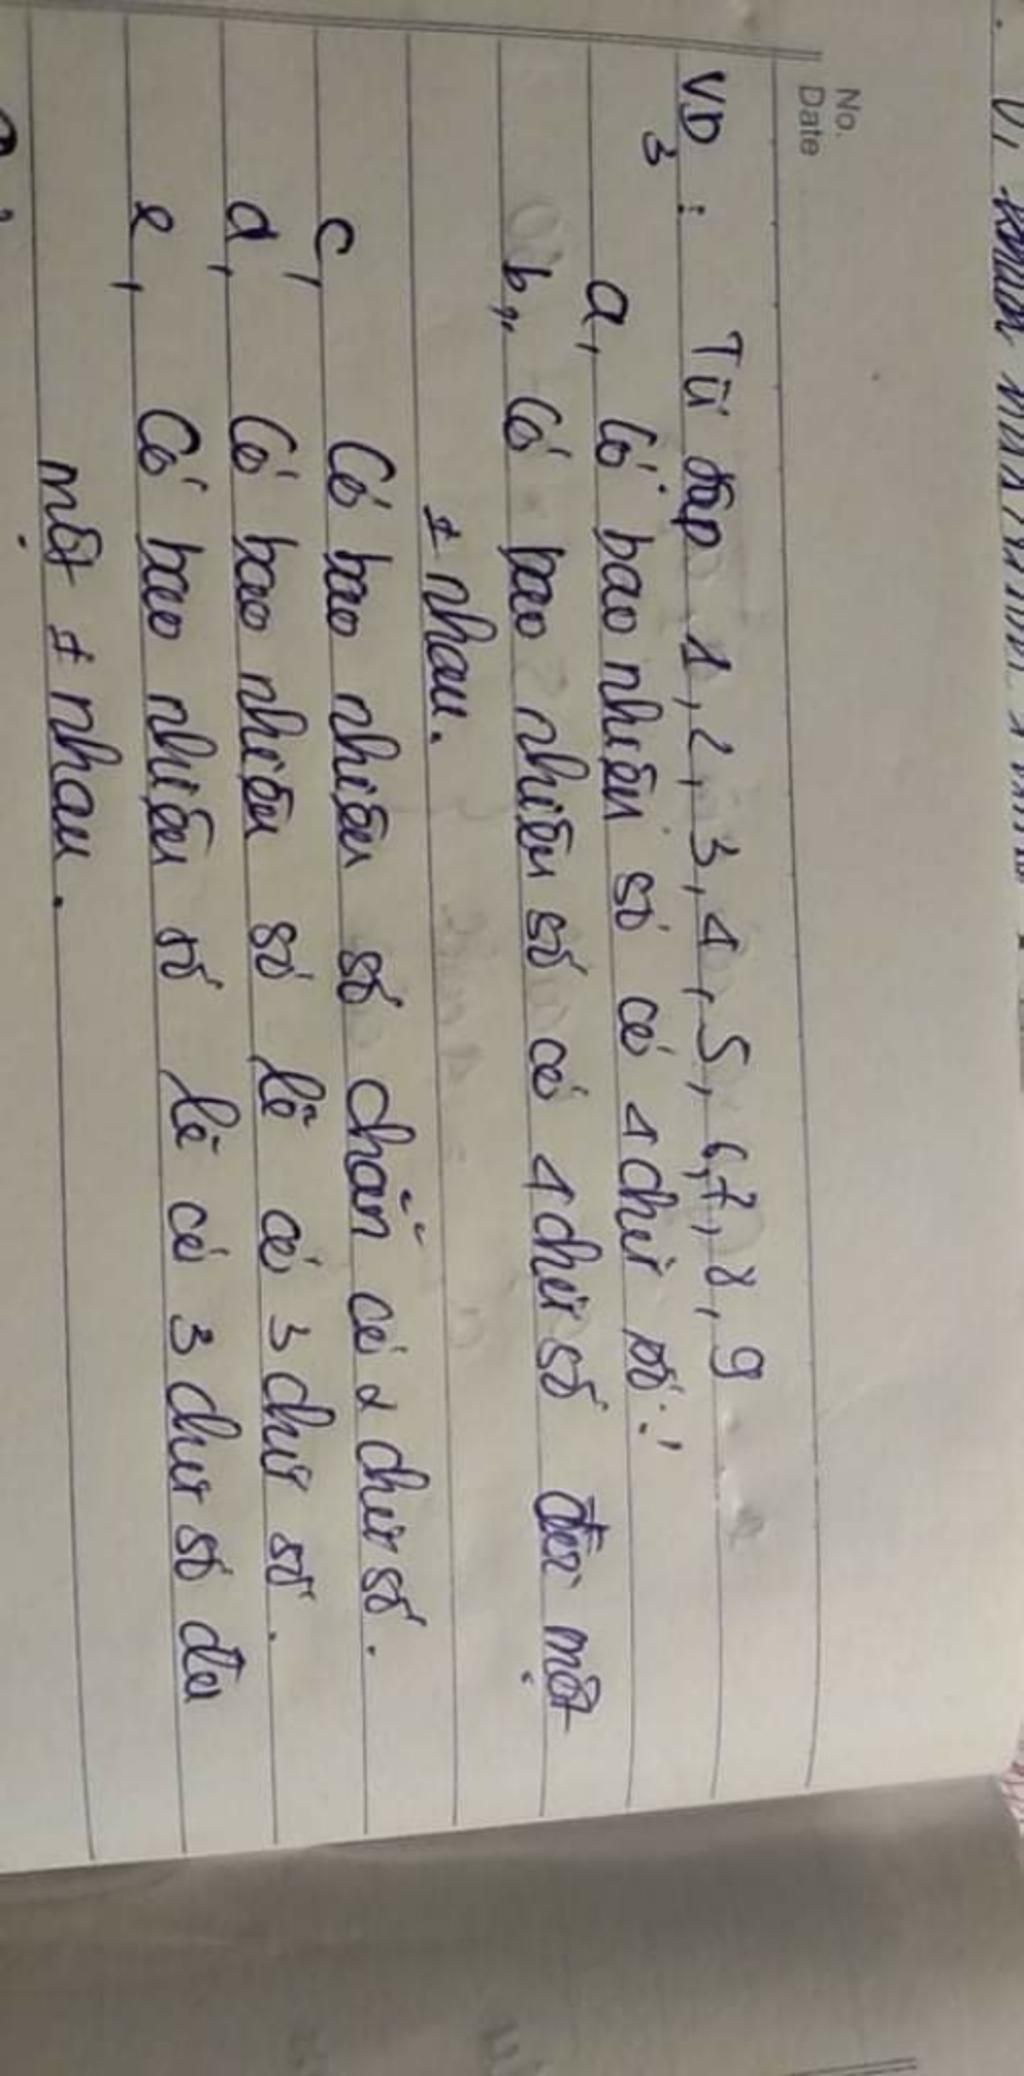 No.
Date
VD3: Từ tập 1, 2, 3, 4, 5, 6, 7, 8, 9
a, Có bao nhiêu số có 4 chữ số:
b, Có bao nhiêu số có 4 chữ số đôi một
≠ nhau.
c, Có bao nhiêu số chẵn có 2 chữ số.
d, Có bao nhiêu số lẽ có 3 chữ số.
e, Có bao nhiêu số lẽ có 3 chữ số đôi
một ≠ nhau.